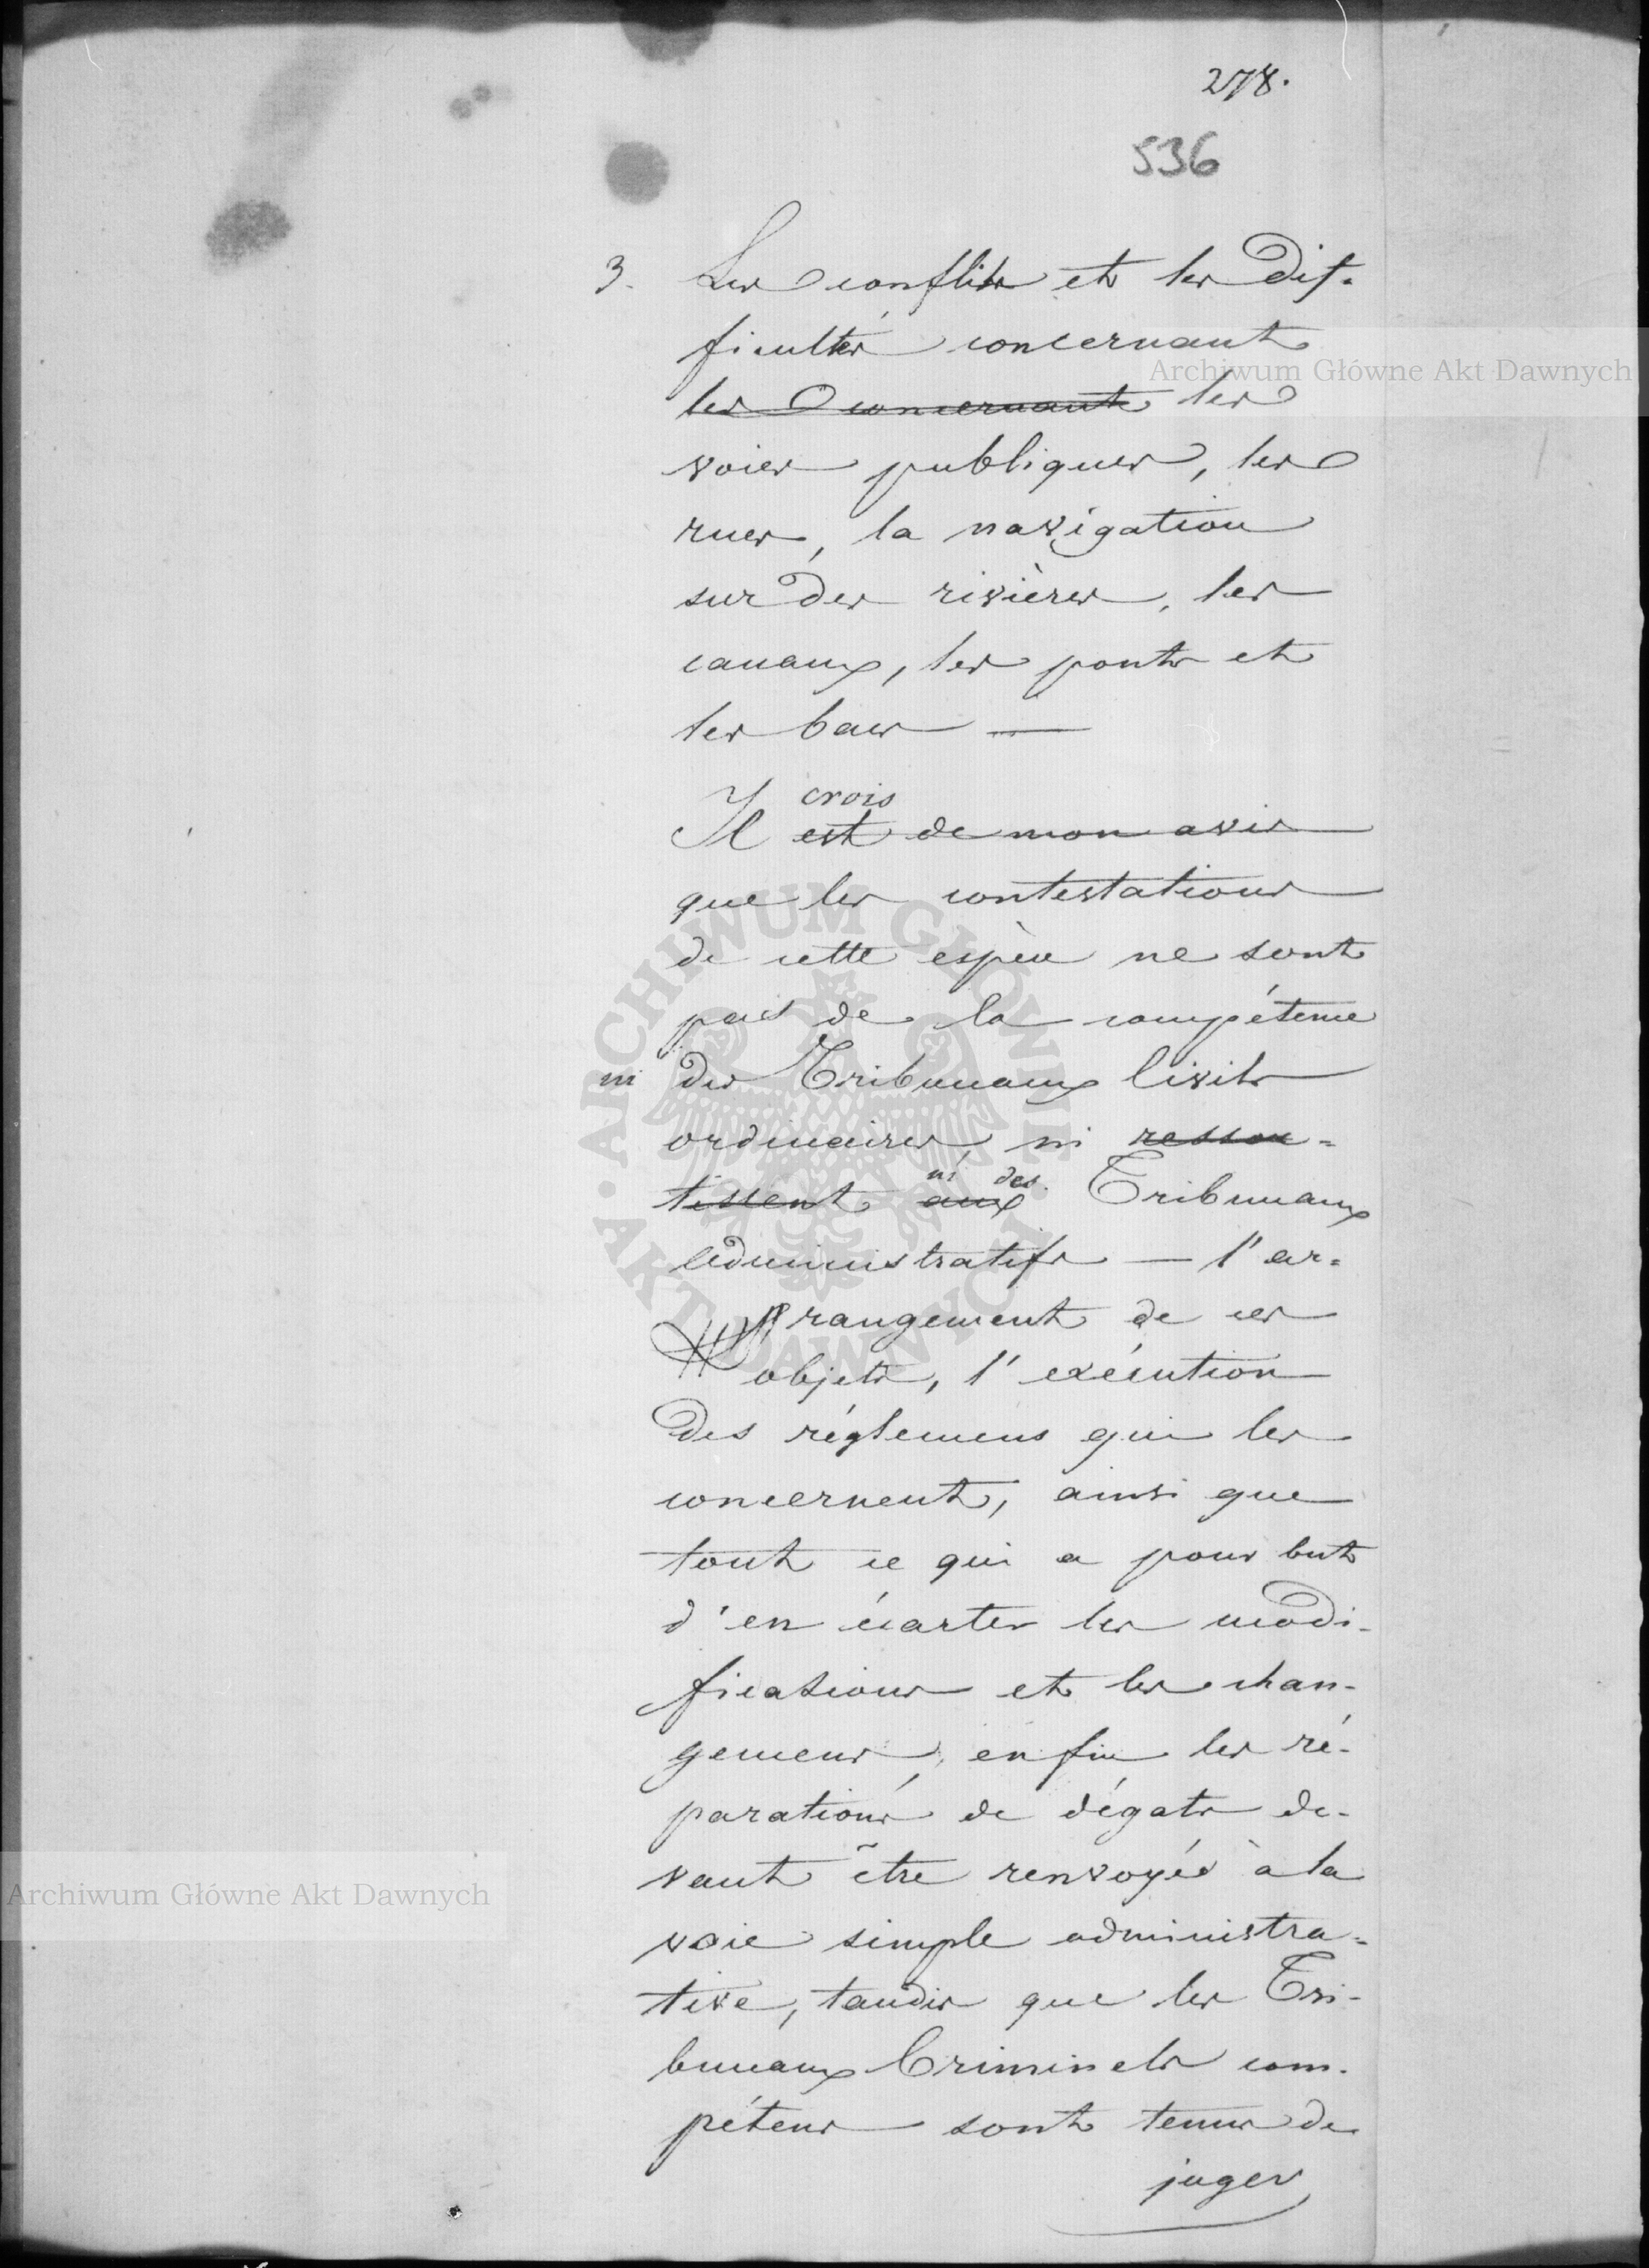 278.
536
3. Les conflits et les dif-
ficultés concernant
les concernant les
voies publiques, les
rues, la navigation
sur des rivières, les
canaux, les ponts et
les bacs —
crois
Il est de mon avis
que les contestations
de cette espèce ne sont
pas de la compétence
ni des Tribunaux Civils
ordinaires, ni ressor=
ni des.
tissent aux Tribunaux
Administratifs — l'ar=
rangement de ces
objets, l'exécution
des réglemens qui les
concernent, ainsi que
tout ce qui a pour but
d'en écarter les modi-
fications et les chan-
gemens, enfin les ré-
parations de dégats de-
vant être renvoyés à la
voie simple administra=
tive, tandis que les Tri-
bunaux Criminels com-
pétens sont tenus de
juger
Archiwum Główne Akt Dawnych
ARCHIWUM GŁÓWNE • AKT DAWNYCH •
Archiwum Główne Akt Dawnych